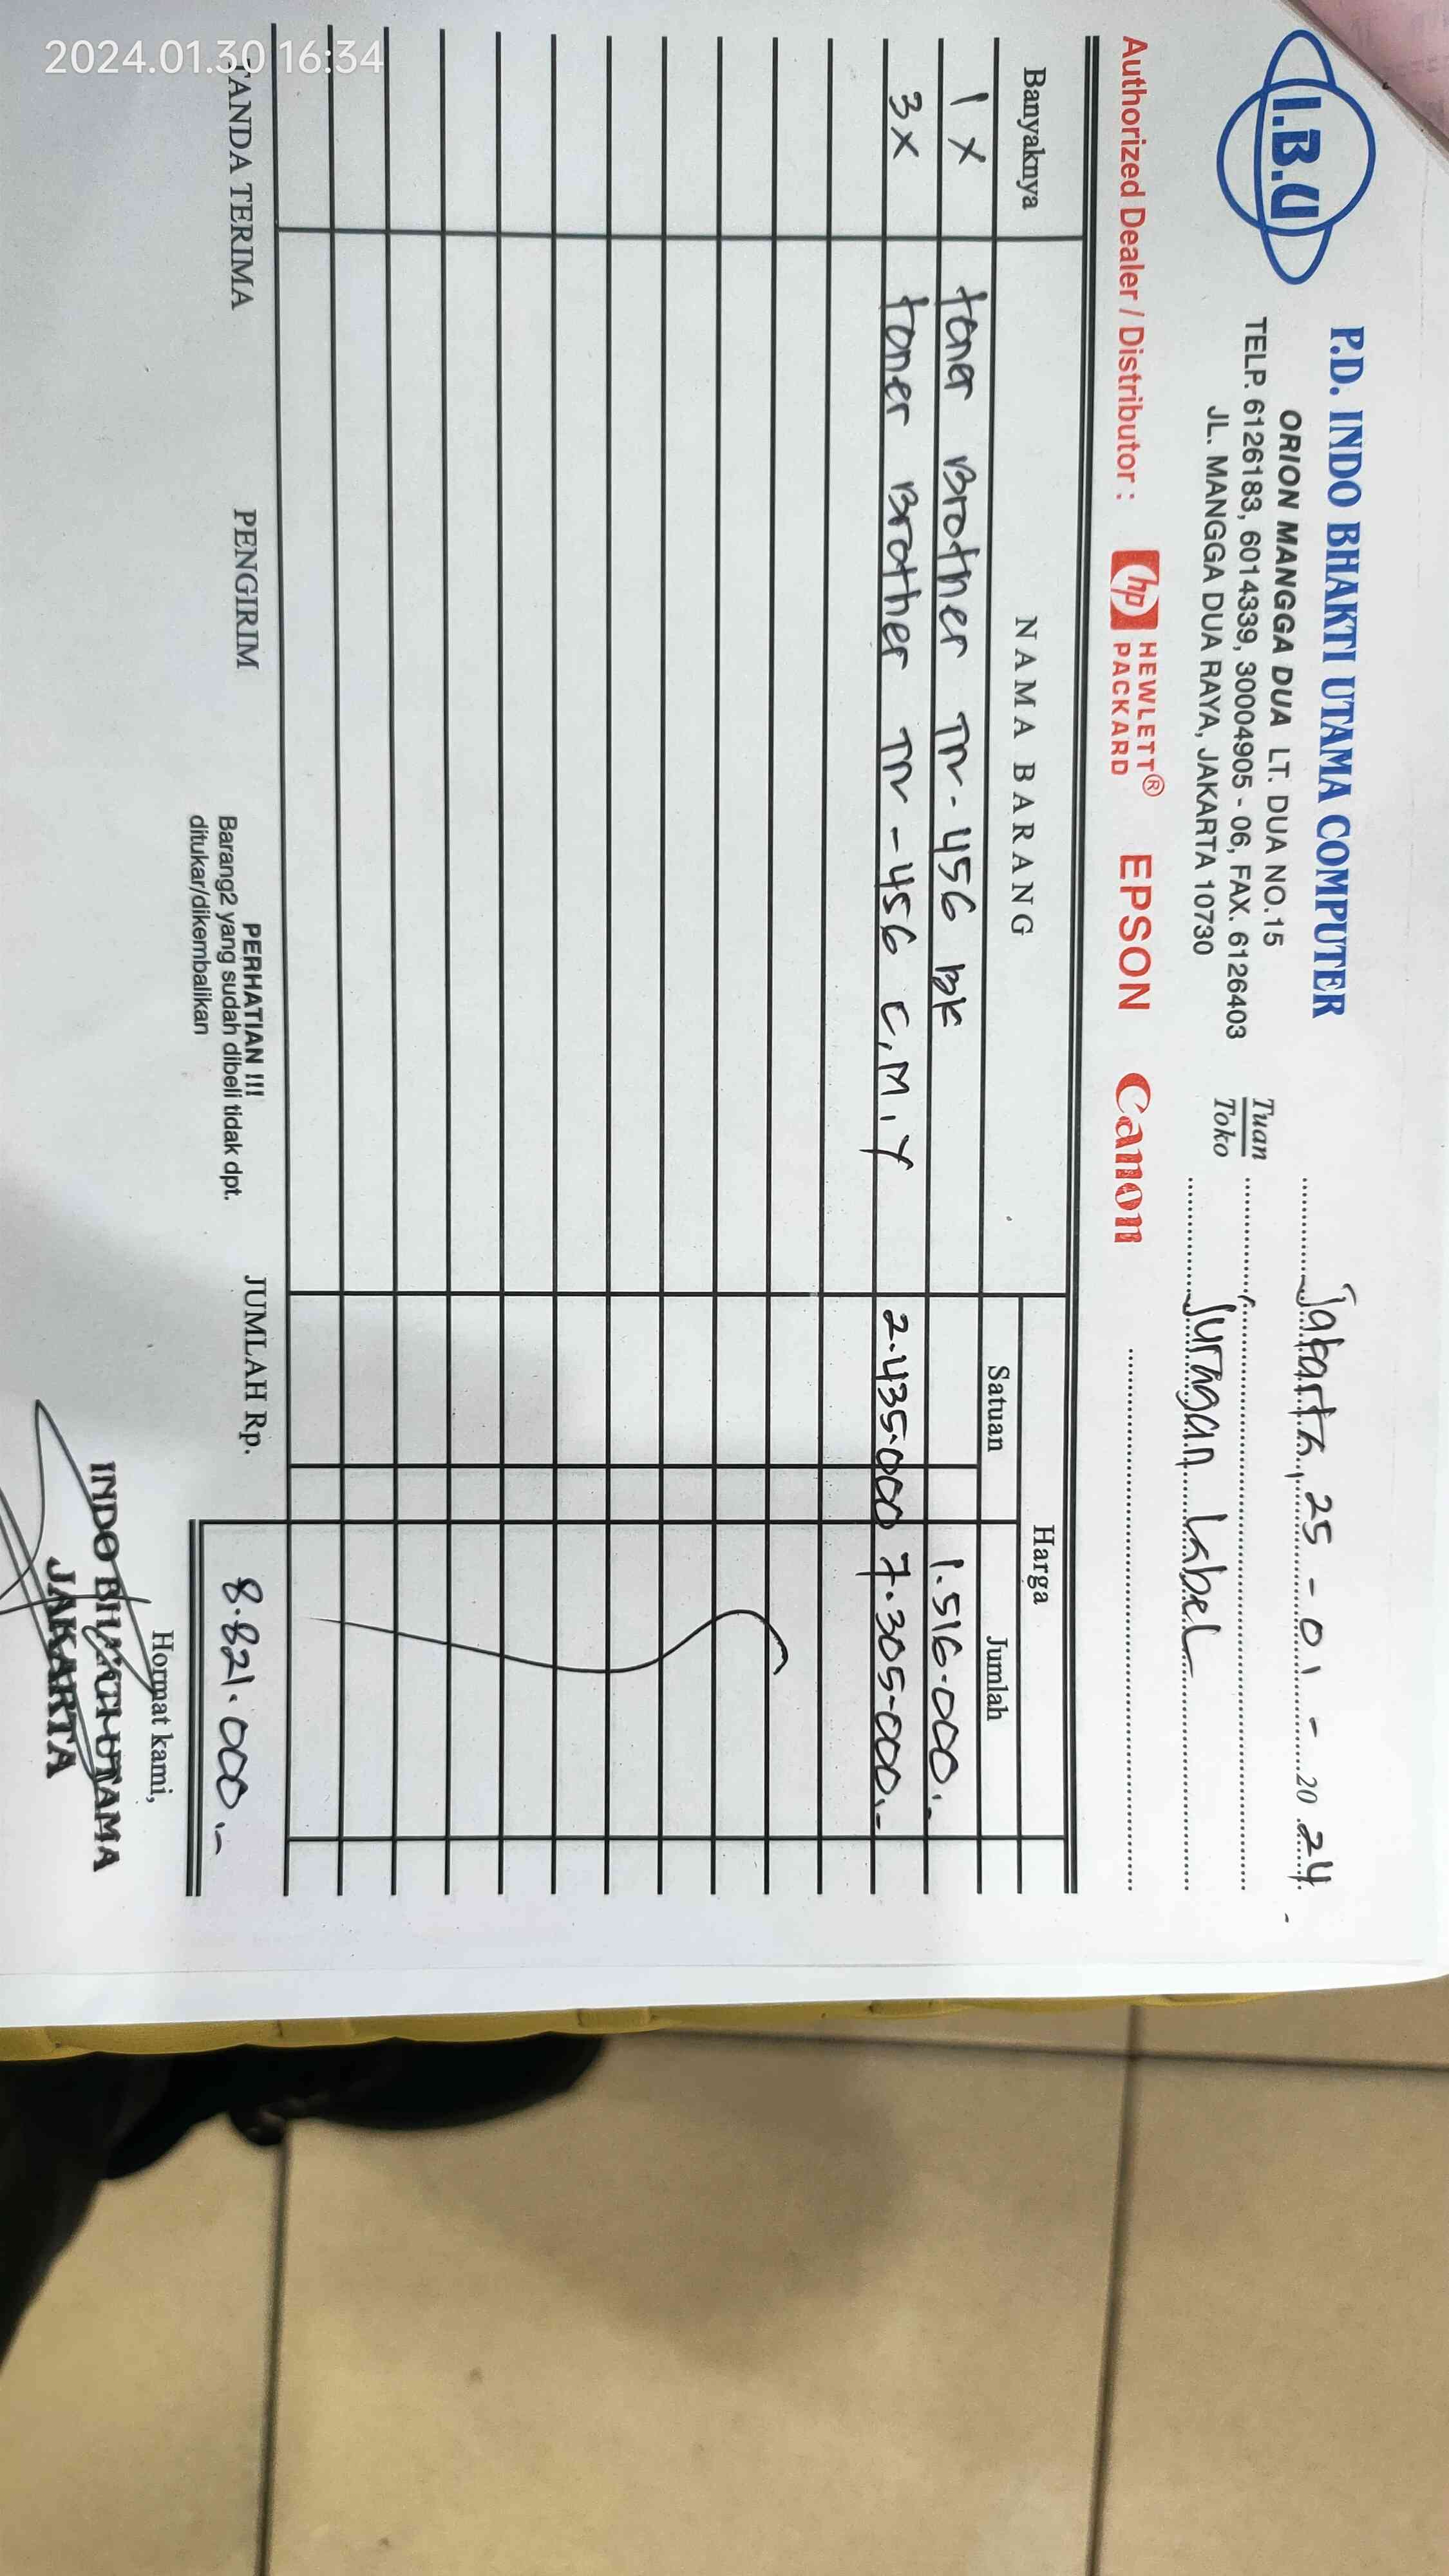 2024.01.30 16:34
I.B.U
P.D. INDO BHAKTI UTAMA COMPUTER
ORION MANGGA DUA LT. DUA NO.15
TELP. 6126183, 6014339, 30004905 - 06, FAX. 6126403
JL. MANGGA DUA RAYA, JAKARTA 10730
Jakarta, 25 - 01 - 20 24
Tuan
Toko
Juragan Label
Authorized Dealer / Distributor : hp HEWLETT® PACKARD EPSON Canon
Banyaknya NAMA BARANG Harga
Satuan Jumlah
1 x toner Brother TN-456 BK 1.516.000.-
3 x toner Brother TN-456 C,M,Y 2.435.000 7.305.000.-
TANDA TERIMA PENGIRIM JUMLAH Rp. 8.821.000.-
PERHATIAN !!!
Barang2 yang sudah dibeli tidak dpt.
ditukar/dikembalikan
Hormat kami,
INDO BHAKTI UTAMA
JAKARTA